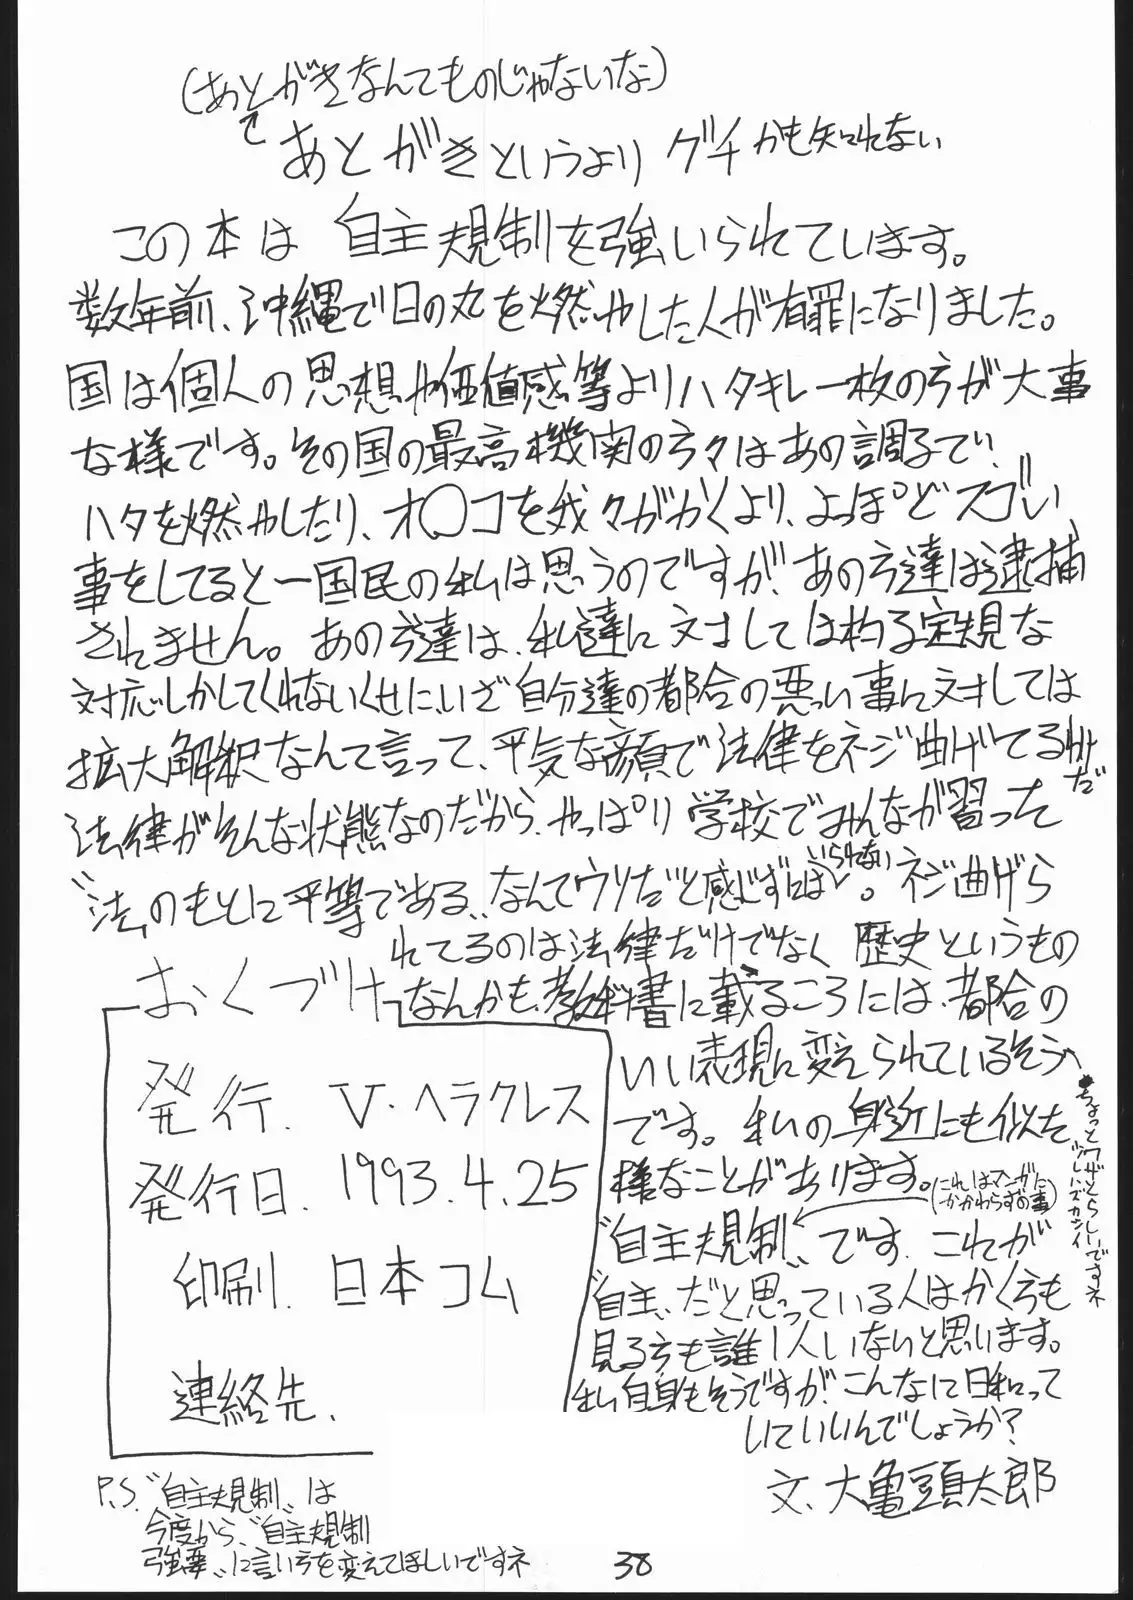 (あとがきなんてものじゃないな)
あとがきというより グチかも知れない
この本は 自主規制を強いられています。
数年前、沖縄で日の丸を燃やした人が有罪になりました。
国は個人の思想や価値感等よりハタキレ一枚の方が大事
な様です。その国の最高機関の方々はあの調子で、
ハタを燃やしたり、オ〇コを我々がかくより、よっぽどスゴい
事をしてると一国民の私は思うのですが、あの方達は逮捕
されません。あの方達は、私達に対しては杓子定規な
対応しかしてくれないくせに、いざ自分達の都合の悪い事に対しては
拡大解釈なんて言って、平気な顔で法律をネジ曲げてるわけだ
法律がそんな状態なのだから、やっぱり学校でみんなが習った
〝法のもとに平等である〟なんてウソだと感じずにはいられない。ネジ曲げら
れてるのは法律だけでなく 歴史というもの
なんかも、教科書に載るころには、都合の
いい表現に変えられているそう
です。私の身近にも似た
様なことがあります。(これはマンガにかかわらずの事)
〝自主規制〟です。これが
〝自主〟だと思っている人はかく方も
見る方も誰1人いないと思います。
私自身もそうですが、こんなに日和って
いていいんでしょうか?
文、大亀頭太郎
ちょっとワザとらしいですネ
ハズカシイ
おくづけ
発行. V・ヘラクレス
発行日. 1993.4.25
印刷. 日本コム
連絡先.
P.S.〝自主規制〟は
今度から、〝自主規制
強要〟に言い方を変えてほしいですネ
38